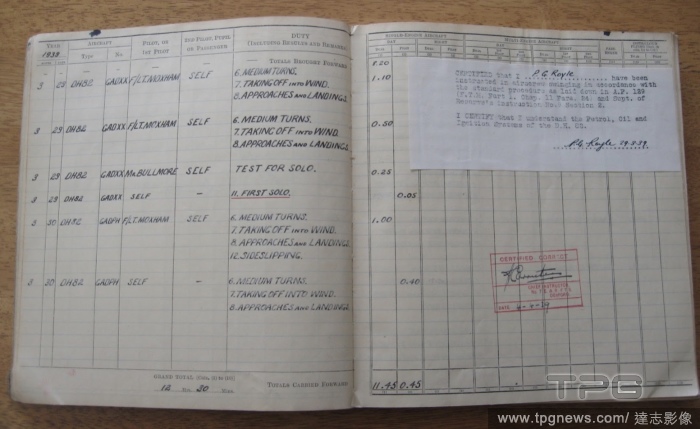 YEAR
1939
AIRCRAFT
Type
No.
PILOT, OR
1ST PILOT
2ND PILOT, PUPIL
OR PASSENGER
DUTY
(INCLUDING RESULTS AND REMARKS)
TOTALS BROUGHT FORWARD
3 29 DH82 GADXX F/LT. MOXHAM SELF 6. MEDIUM TURNS.
7. TAKING OFF INTO WIND.
8. APPROACHES AND LANDINGS.
3 29 DH82 GADXX F/LT. MOXHAM SELF 6. MEDIUM TURNS.
7. TAKING OFF INTO WIND.
8. APPROACHES AND LANDINGS.
3 29 DH82 GADXX MR BULLMORE SELF TEST FOR SOLO.
3 29 DH82 GADXX SELF — 11. FIRST SOLO.
3 30 DH82 GADPH F/LT. MOXHAM SELF 6. MEDIUM TURNS.
7. TAKING OFF INTO WIND.
8. APPROACHES AND LANDINGS.
12. SIDESLIPPING.
3 30 DH82 GADPH SELF — 6. MEDIUM TURNS.
7. TAKING OFF INTO WIND.
8. APPROACHES AND LANDINGS.
GRAND TOTAL
12 Hrs. 30 Mins.
TOTALS CARRIED FORWARD
SINGLE-ENGINE AIRCRAFT
MULTI-ENGINE AIRCRAFT
DAY
NIGHT
8.20
1.10
0.50
0.25
0.05
1.00
0.40
11.45 0.45
CERTIFIED that I P. G. Royle have been
instructed in airscrew swinging in accordance with
the standard procedure as laid down in A.P. 129
(F.T.M. Part 1. Chap. 11 Para. 84) and Dept. of
Reserve's Instruction No. Section 2.
I CERTIFY that I understand the Petrol, Oil and
Ignition Systems of the D.H. 82.
P.G. Royle 29.3.39.
CERTIFIED CORRECT
CHIEF INSTRUCTOR
DATE
TPG
www.tpgnews.com/ 達志影像